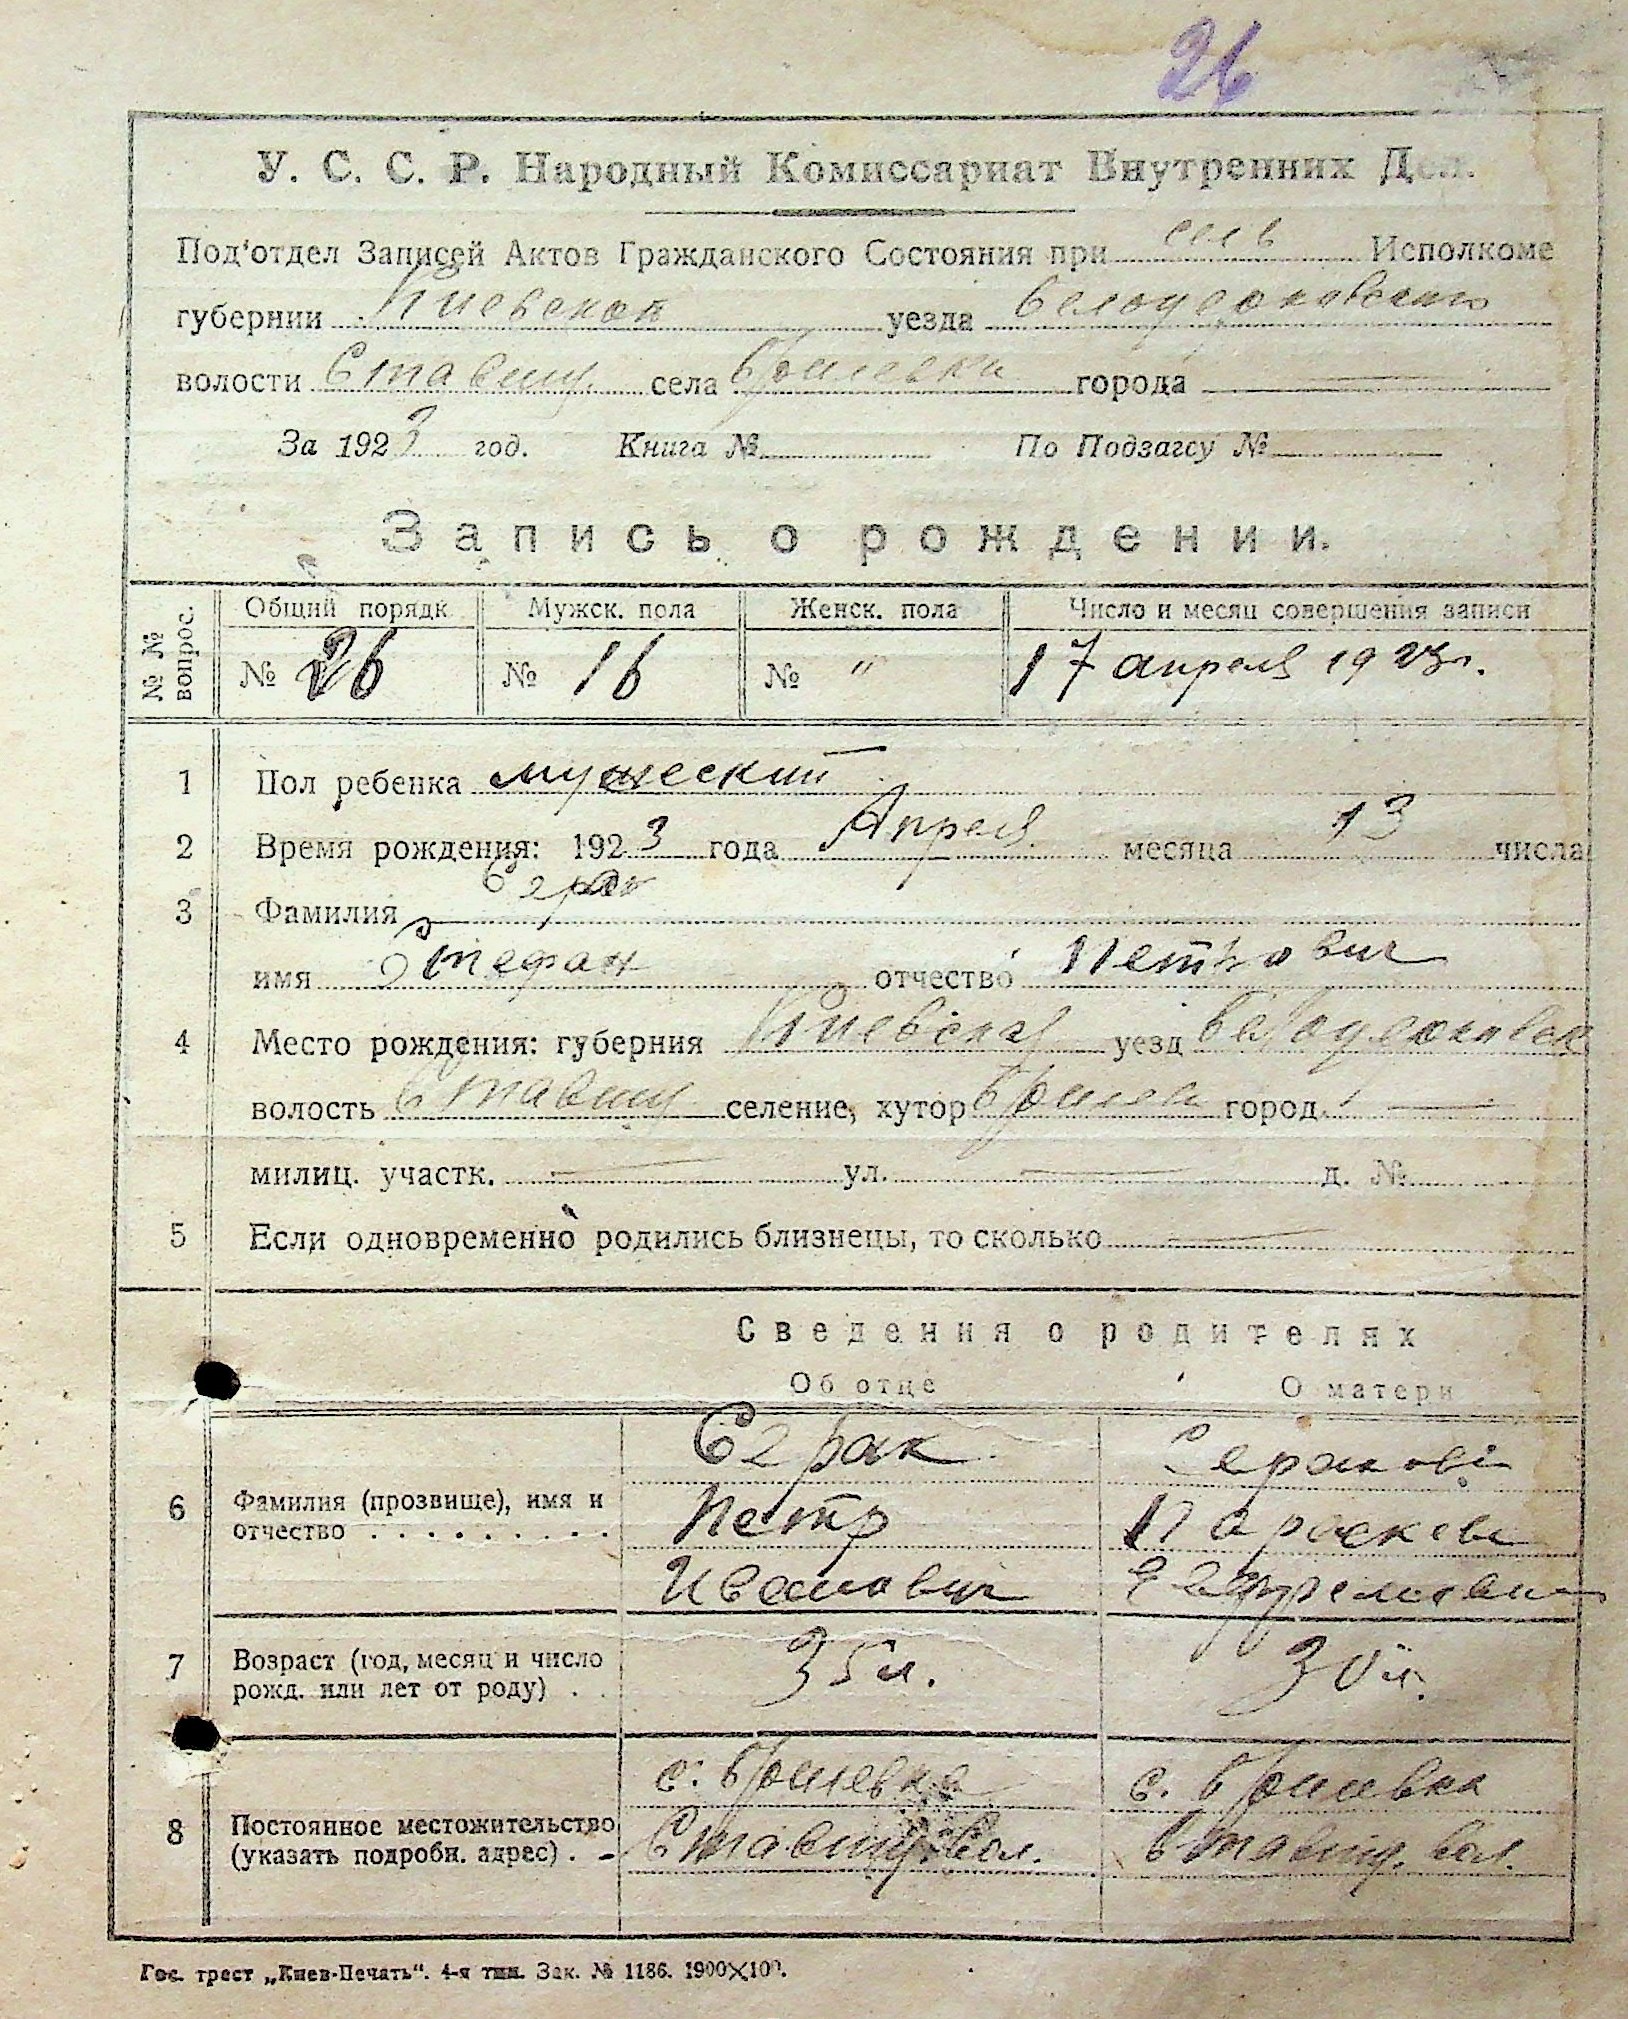 26
У. С. С. Р. Народный Комиссариат Внутренних Дел.
Под'отдел Записей Актов Гражданского Состояния при сель Исполкоме
губернии Киевской уезда Белоцерковского
волости Ставищ. села города
За 1923 год. Книга № По Подзагсу №
Запись о рождении.
№ № вопрос. Общий порядк Мужск. пола Женск. пола Число и месяц совершения записи
№ 26 № 16 № " 17 апреля 1923 г.
1 Пол ребенка мужеский
2 Время рождения: 1923 года Апреля месяца 13 числа
3 Фамилия Серак
имя Стефан отчество Петрович
4 Место рождения: губерния Киевская уезд Белоцерковск
волость Ставищ селение, хутор город —
милиц. участк. — ул. — д. №
5 Если одновременно родились близнецы, то сколько —
Сведения о родителях
Об отце О матери
6 Фамилия (прозвище), имя и отчество . . . . . . . . .
Серак
Петр
Иванович
Параскева
7 Возраст (год, месяц и число рожд. или лет от роду) . .
35 л. 30 л.
8 Постоянное местожительство (указать подробн. адрес) . .
с. с.
Ставищ. вол. Ставищ. вол.
Гос. трест „Киев-Печать“. 4-я тип. Зак. № 1186. 1900×100.